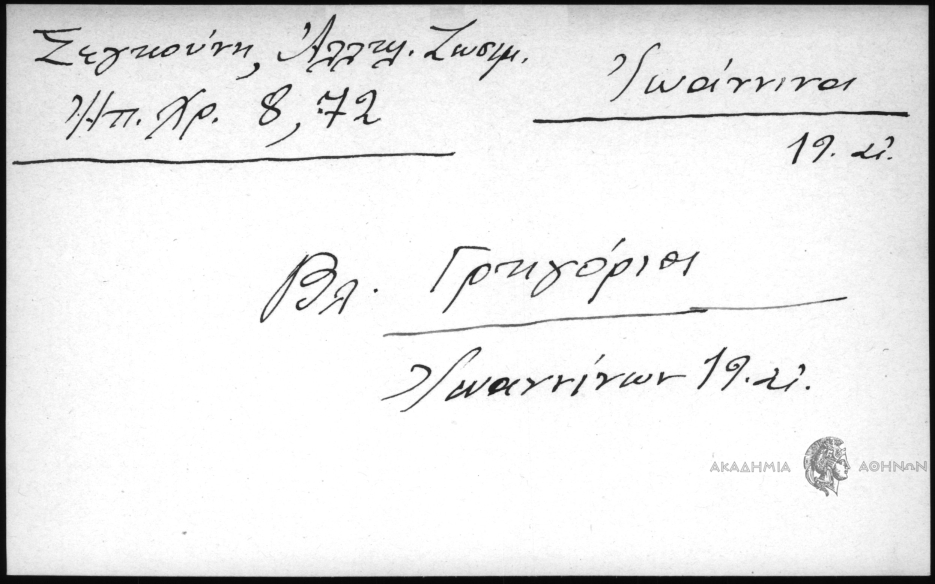 Σεγκούνη, Ἀλληλ. Ζωσιμ.
Ἠπ. Χρ. 8, 72
Ἰωάννινα
19. αἰ.
Βλ. Γρηγόριοι
Ἰωαννίνων 19. αἰ.
ΑΚΑΔΗΜΙΑ ΑΘΗΝΩΝ